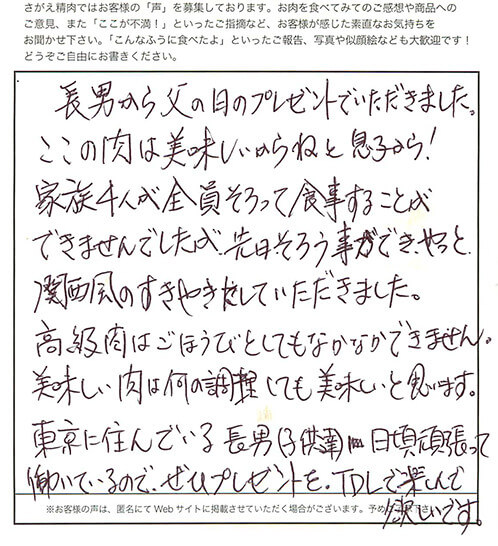 さがえ精肉ではお客様の「声」を募集しております。お肉を食べてみてのご感想や商品への
ご意見、また「ここが不満！」といったご指摘など、お客様が感じた素直なお気持ちを
お聞かせ下さい。「こんなふうに食べたよ」といったご報告、写真や似顔絵なども大歓迎です！
どうぞご自由にお書きください。
長男から父の日のプレゼントでいただきました。
ここの肉は美味しいからねと息子から！
家族4人が全員そろって食事することが
できませんでしたが、先日、そろう事ができ、やっと
関西風のすきやきにしていただきました。
高級肉はごほうびとしてもなかなかできません。
美味しい肉は何の調理しても美味しいと思います。
東京に住んでいる長男(子供達) 日頃頑張って
働いているので、ぜひプレゼントを。TDLで楽しんで
欲しいです。
※お客様の声は、匿名にてWebサイトに掲載させていただく場合がございます。予めご了承下さい